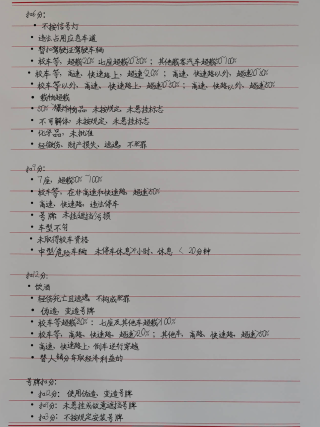 扣6分：
• 不按信号灯
• 违法占用应急车道
• 暂扣驾驶证驾驶车辆
• 校车等，超载20% 七座超载20~50%；其他载客汽车超载50~100%
• 校车等，高速、快速路上，超速20%；高速、快速路以外，超速20~50%
• 校车等以外，高速、快速路上，超速20~50%；高速、快速路以外，超速50%
• 载物超载
• 爆炸物品，未按规定、未悬挂标志
• 不可解体，未按规定，未悬挂标志
• 化学品，未批准
• 轻微伤、财产损失，逃逸，不犯罪
扣9分：
• 7座，超载50%~100%
• 校车等，在非高速和快速路，超速50%
• 高速、快速路，违法停车
• 号牌：未挂遮挡污损
• 车型不符
• 未取得校车资格
• 中型危险车辆：未停车休息4小时、休息 < 20分钟
扣12分：
• 饮酒
• 轻伤死亡且逃逸，不构成犯罪
• 伪造、变造号牌
• 校车等超载20%；七座及其他车超载100%
• 校车等，高路、快速路，超速20%；其他车，高路、快速路，超速50%
• 高速、快速路上，倒车逆行穿越
• 替人扣分牟取经济利益的
号牌扣分：
• 扣12分：使用伪造、变造号牌
• 扣9分：未悬挂或故意遮挡号牌
• 扣3分：不按规定安装号牌